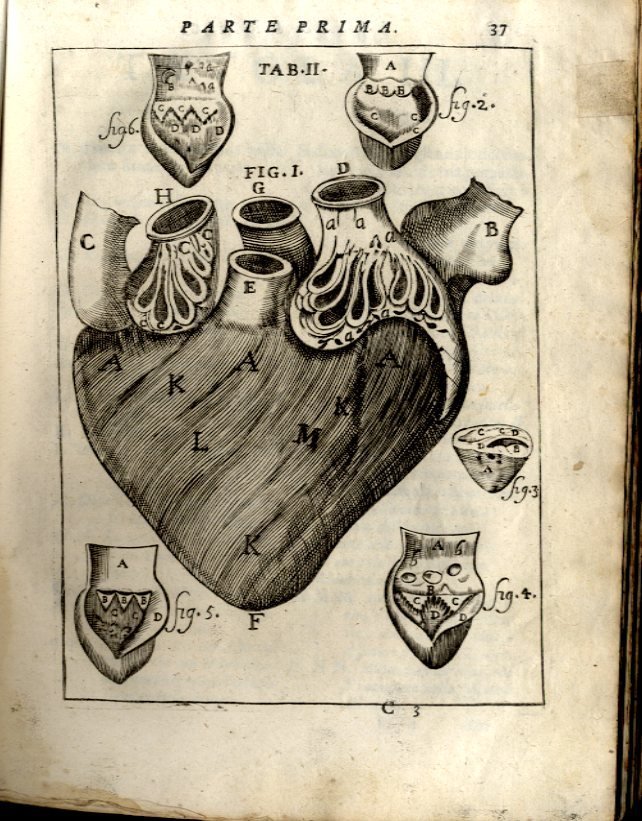 PARTE PRIMA. 37
TAB·II·
A
B B B
C C
C
fig·2.
C B A
C C C
D D D
fig6.
FIG. I.
H G D
C B
C C
a a a
E
a a a
A A A
K K
L M
K
F
C C D
D B
A
fig.3
A
B B B
C C
D
fig. 5.
A 6
B
C C
D D
fig. 4.
C 3